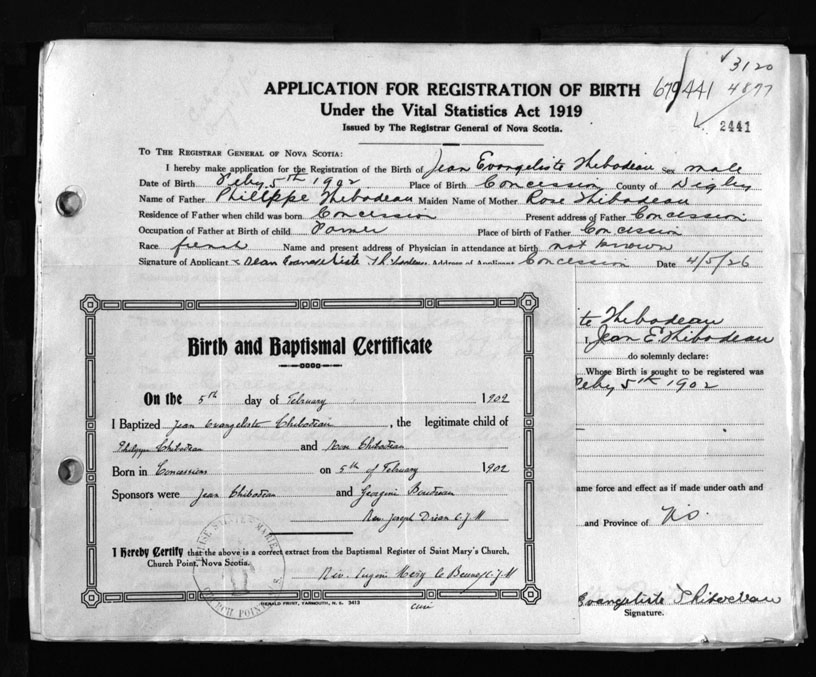 3120
APPLICATION FOR REGISTRATION OF BIRTH 679/441 4877
Under the Vital Statistics Act 1919
2441
Issued by The Registrar General of Nova Scotia.
TO THE REGISTRAR GENERAL OF NOVA SCOTIA:
I hereby make application for the Registration of the Birth of Jean Evangeliste Thibodeau Sex male
Date of Birth Feby 5th 1902 Place of Birth Concession County of Digby
Name of Father Philippe Thibodeau Maiden Name of Mother Rose Thibodeau
Residence of Father when child was born Concession Present address of Father Concession
Occupation of Father at Birth of child Farmer Place of birth of Father Concession
Race french Name and present address of Physician in attendance at birth not known
Signature of Applicant Jean Evangeliste Thibodeau Address of Applicant Concession Date 4/5/26
te Thibodeau
I, Jean E Thibodeau
do solemnly declare:
Whose Birth is sought to be registered was
Feby 5th 1902
ame force and effect as if made under oath and
and Province of N.S.
Evangeliste Thibodeau
Signature.
Birth and Baptismal Certificate
On the 5th day of February 1902
I Baptized Jean Evangeliste Thibodeau, the legitimate child of
Philippe Thibodeau and Rose Thibodeau
Born in Concession on 5th of February 1902
Sponsors were Jean Thibodeau and Georgine
Rev. Joseph C.J.M
I Hereby Certify that the above is a correct extract from the Baptismal Register of Saint Mary's Church,
Church Point, Nova Scotia.
Rev. Eugene C.J.M
curé
HERALD PRINT, YARMOUTH, N. S. 3413
SAINTE MARIE
CHURCH POINT